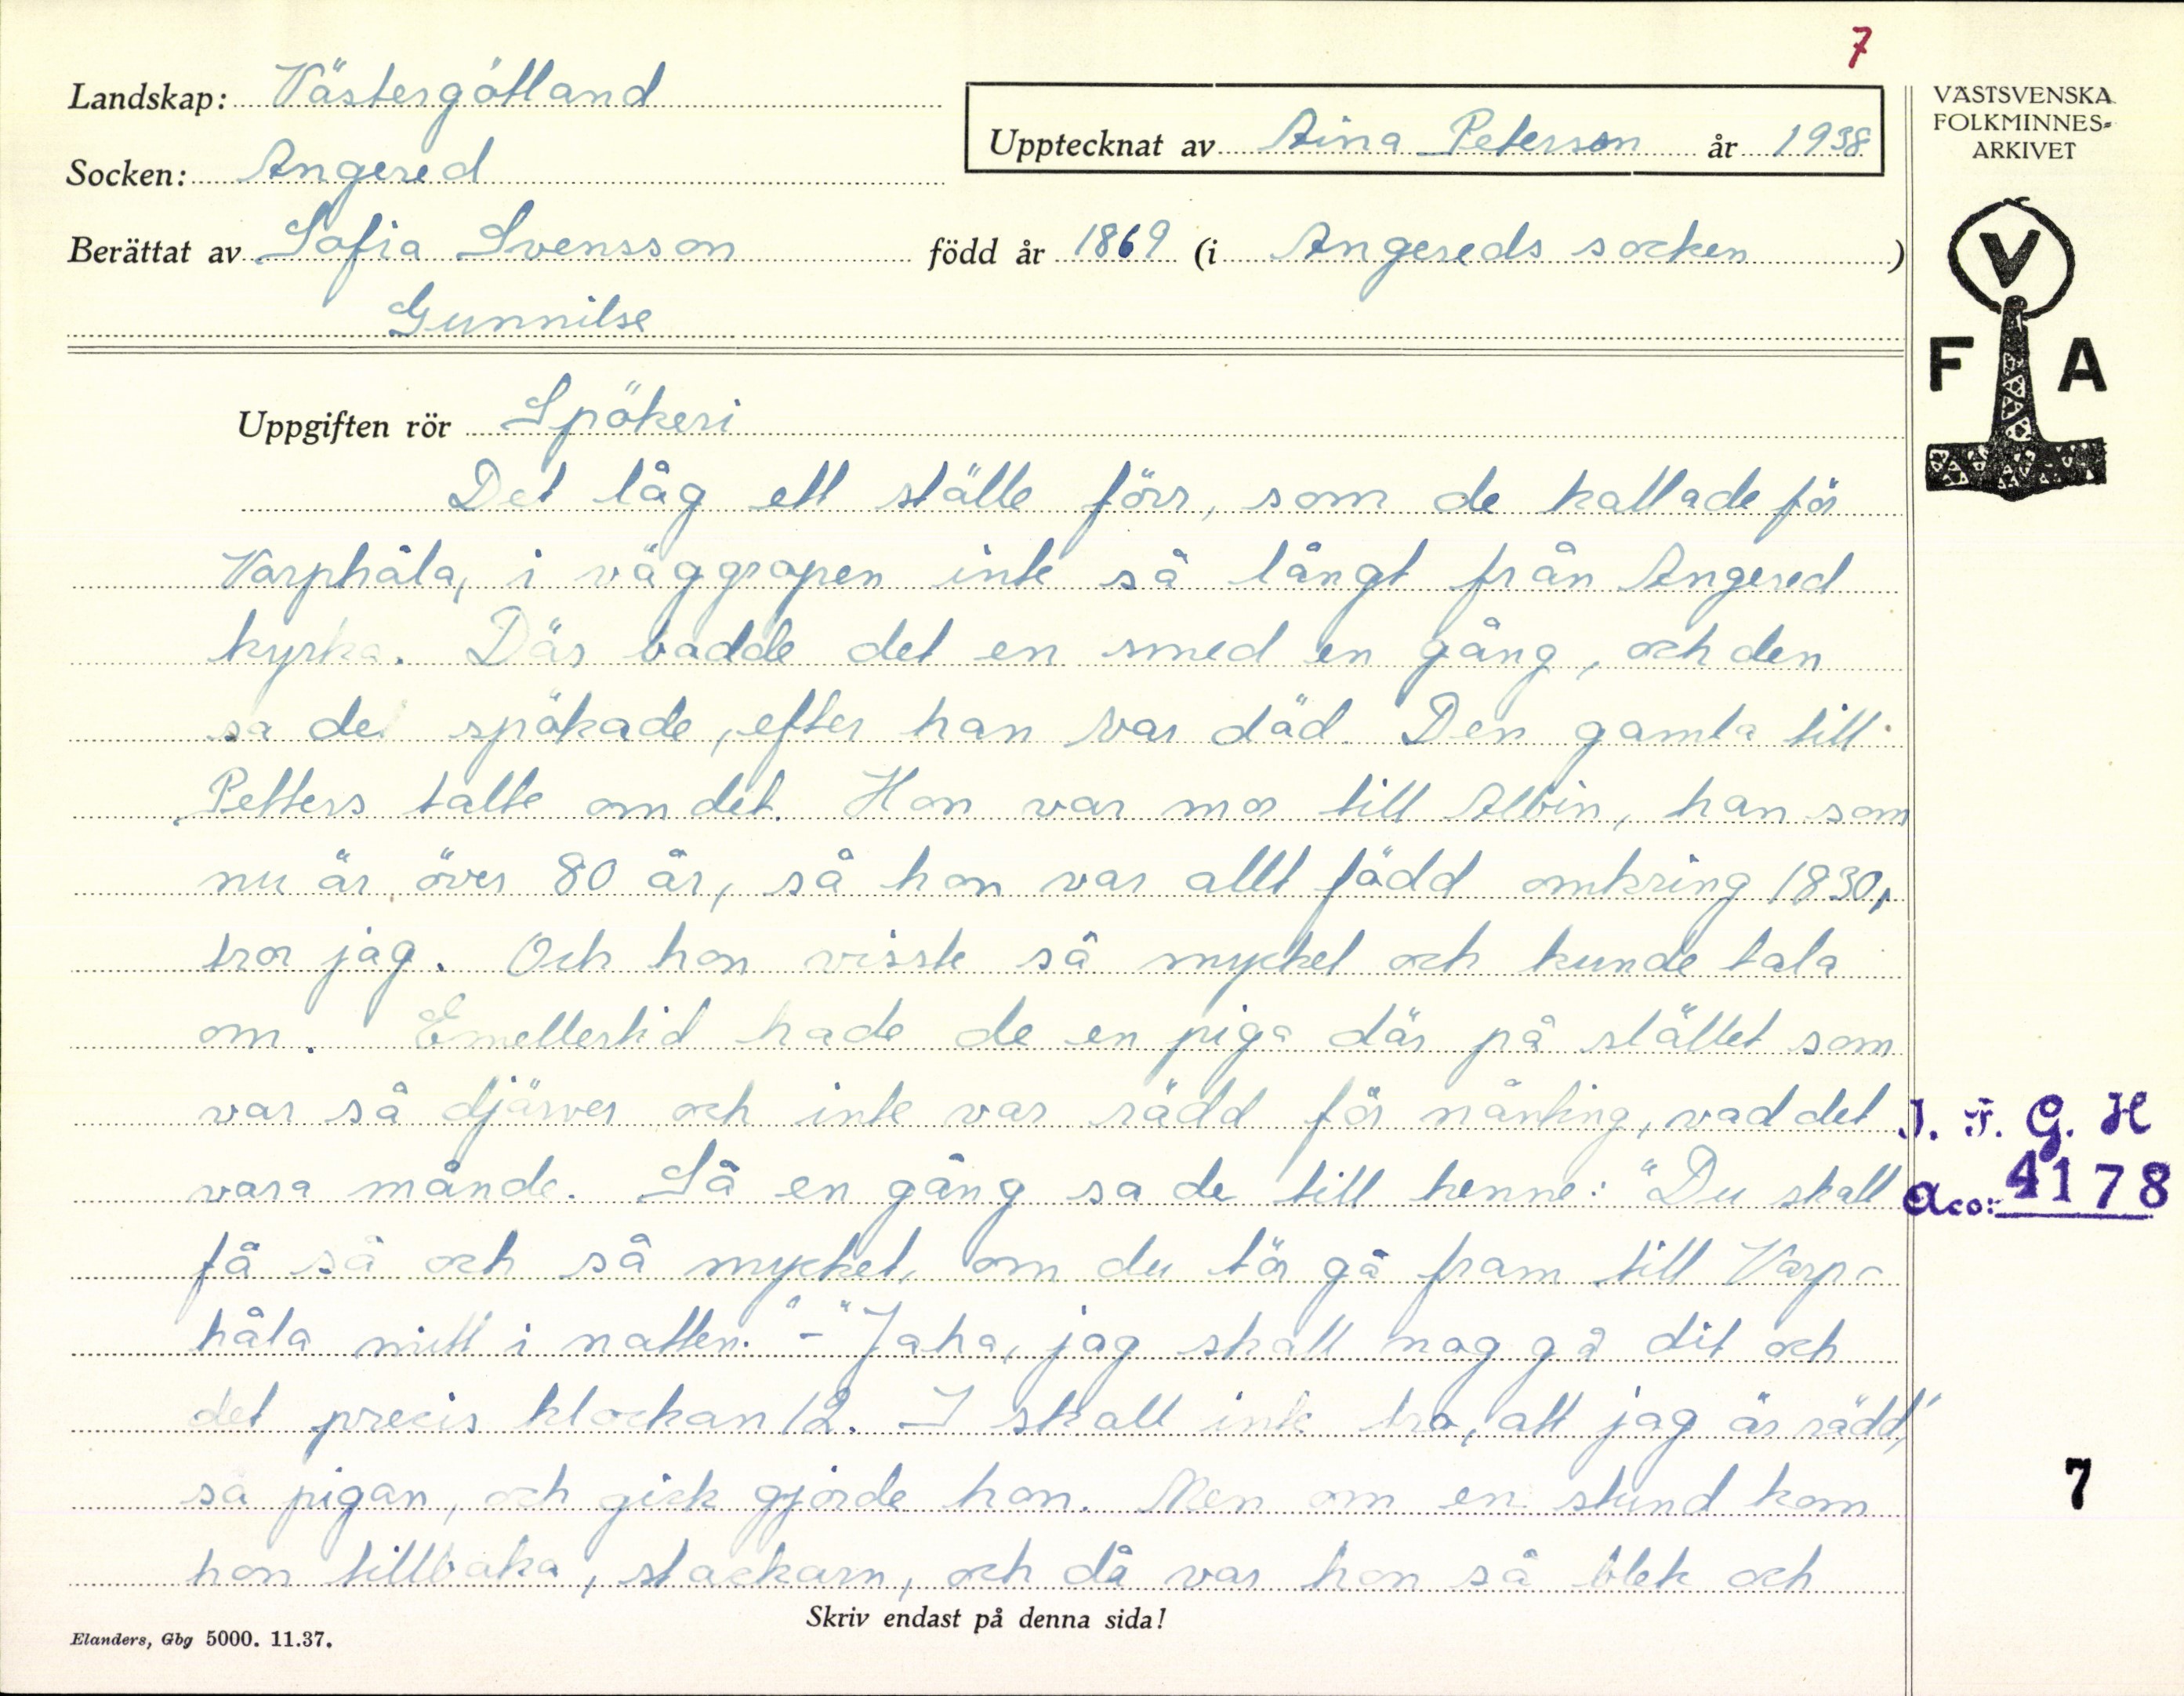 7
Landskap: Västergötland
VÄSTSVENSKA
FOLKMINNES-
ARKIVET
Upptecknat av Aina Peterson år 1938
Socken: Angered
Berättat av Sofia Svensson född år 1869 (i Angereds socken)
Gunnilse
V
F A
Uppgiften rör Spökeri
Det låg ett ställe förr, som de kallade för
Varphåla, i väggropen inte så långt från Angered
kyrka. Där badde det en smed en gång, och den
sa de spökade, efter han var död. Den gamla till
Petters talte om det. Hon var mor till Albin, han som
nu är över 80 år, så hon var allt född omkring 1830,
tror jag. Och hon visste så mycket och kunde tala
om. Emellertid hade de en piga där på stället som
var så djärver och inte var rädd för nånting, vad det
vara månde. Så en gång sa de till henne: "Du skall
få så och så mycket, om du tör gå fram till Varp-
håla mitt i natten." - "Jaha, jag skall nog gå dit och
det precis klockan 12. I skall inte tro, att jag är rädd,"
sa pigan, och gick gjorde hon. Men om en stund kom
hon tillbaka, stackarn, och då var hon så blek och
I. F. G. H
Acc: 4178
7
Skriv endast på denna sida!
Elanders, Gbg 5000. 11.37.